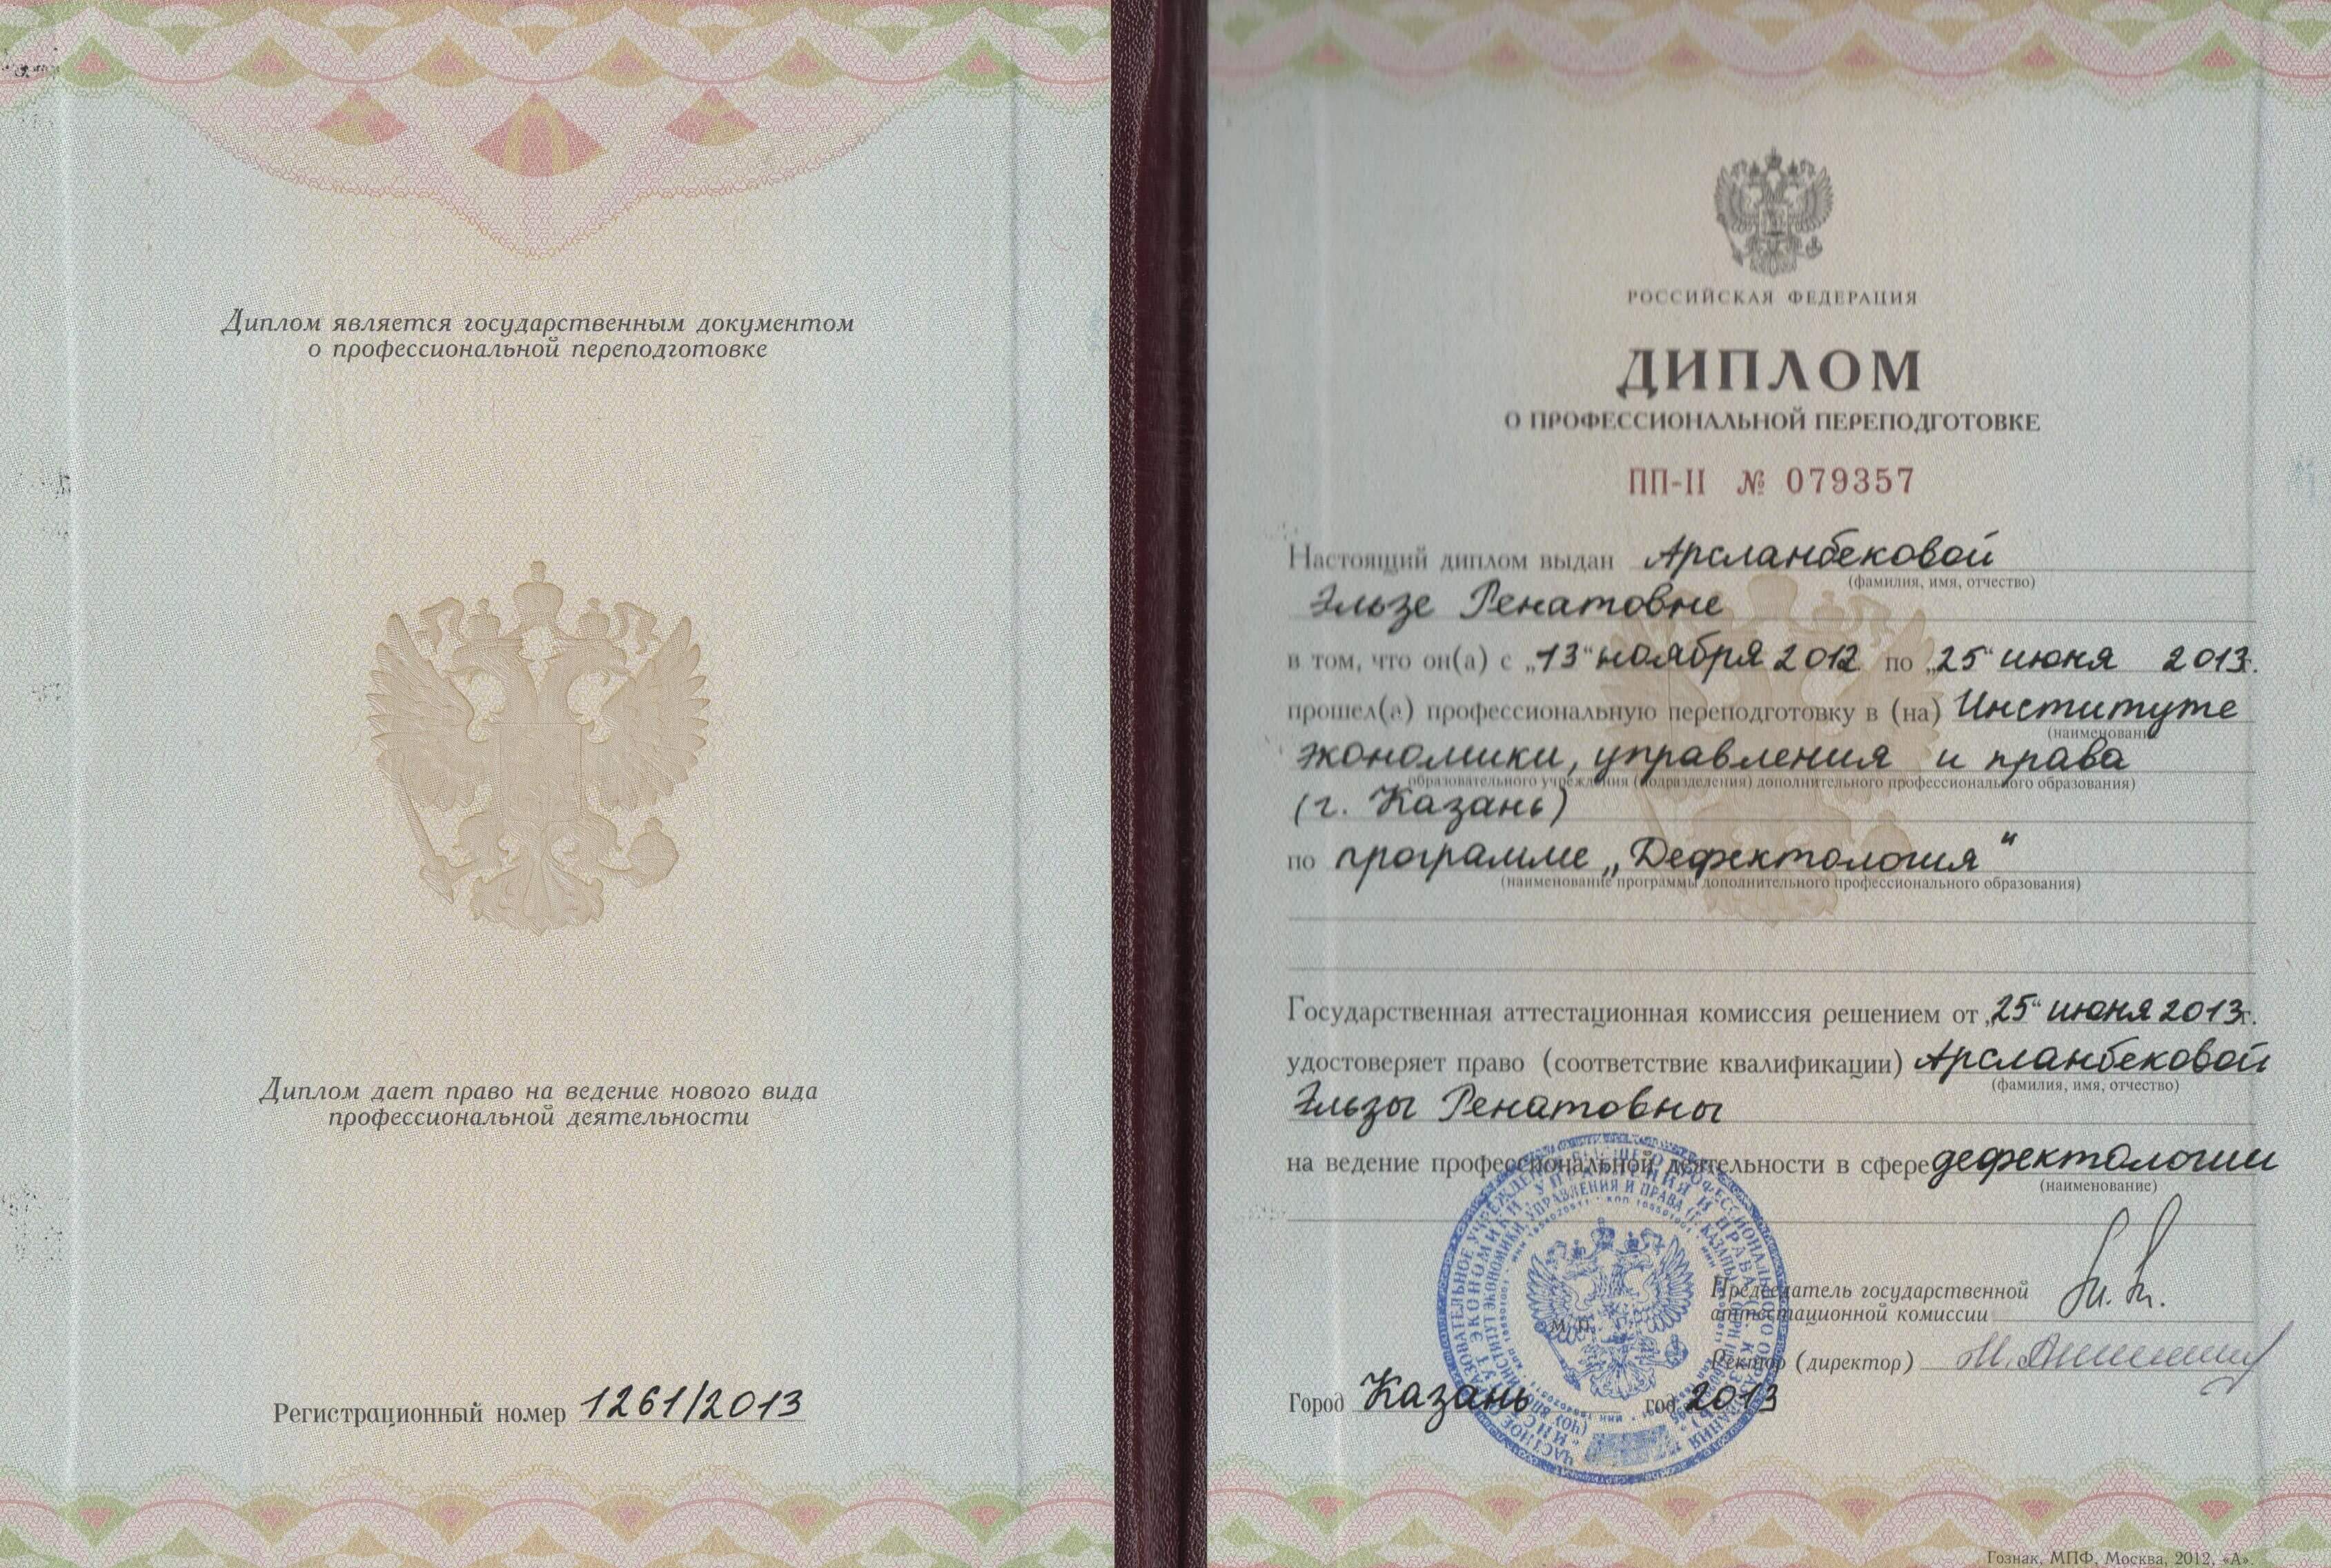 Диплом является государственным документом
о профессиональной переподготовке
Диплом дает право на ведение нового вида
профессиональной деятельности
Регистрационный номер 1261/2013
РОССИЙСКАЯ ФЕДЕРАЦИЯ
ДИПЛОМ
О ПРОФЕССИОНАЛЬНОЙ ПЕРЕПОДГОТОВКЕ
ПП-II № 079357
Настоящий диплом выдан Арсланбековой
(фамилия, имя, отчество)
Эльзе Ренатовне
в том, что он(а) с „13“ ноября 2012 по „25“ июня 2013г.
прошел(а) профессиональную переподготовку в (на) Институте
(наименование
экономики, управления и права
образовательного учреждения (подразделения) дополнительного профессионального образования)
(г. Казань)
по программе „Дефектология“
(наименование программы дополнительного профессионального образования)
Государственная аттестационная комиссия решением от „25“ июня 2013г.
удостоверяет право (соответствие квалификации) Арсланбековой
(фамилия, имя, отчество)
Эльзы Ренатовны
на ведение профессиональной деятельности в сфере дефектологии
(наименование)
Председатель государственной
аттестационной комиссии
М. П.
Ректор (директор)
Город Казань год 2013
Гознак, МПФ, Москва, 2012, «А».